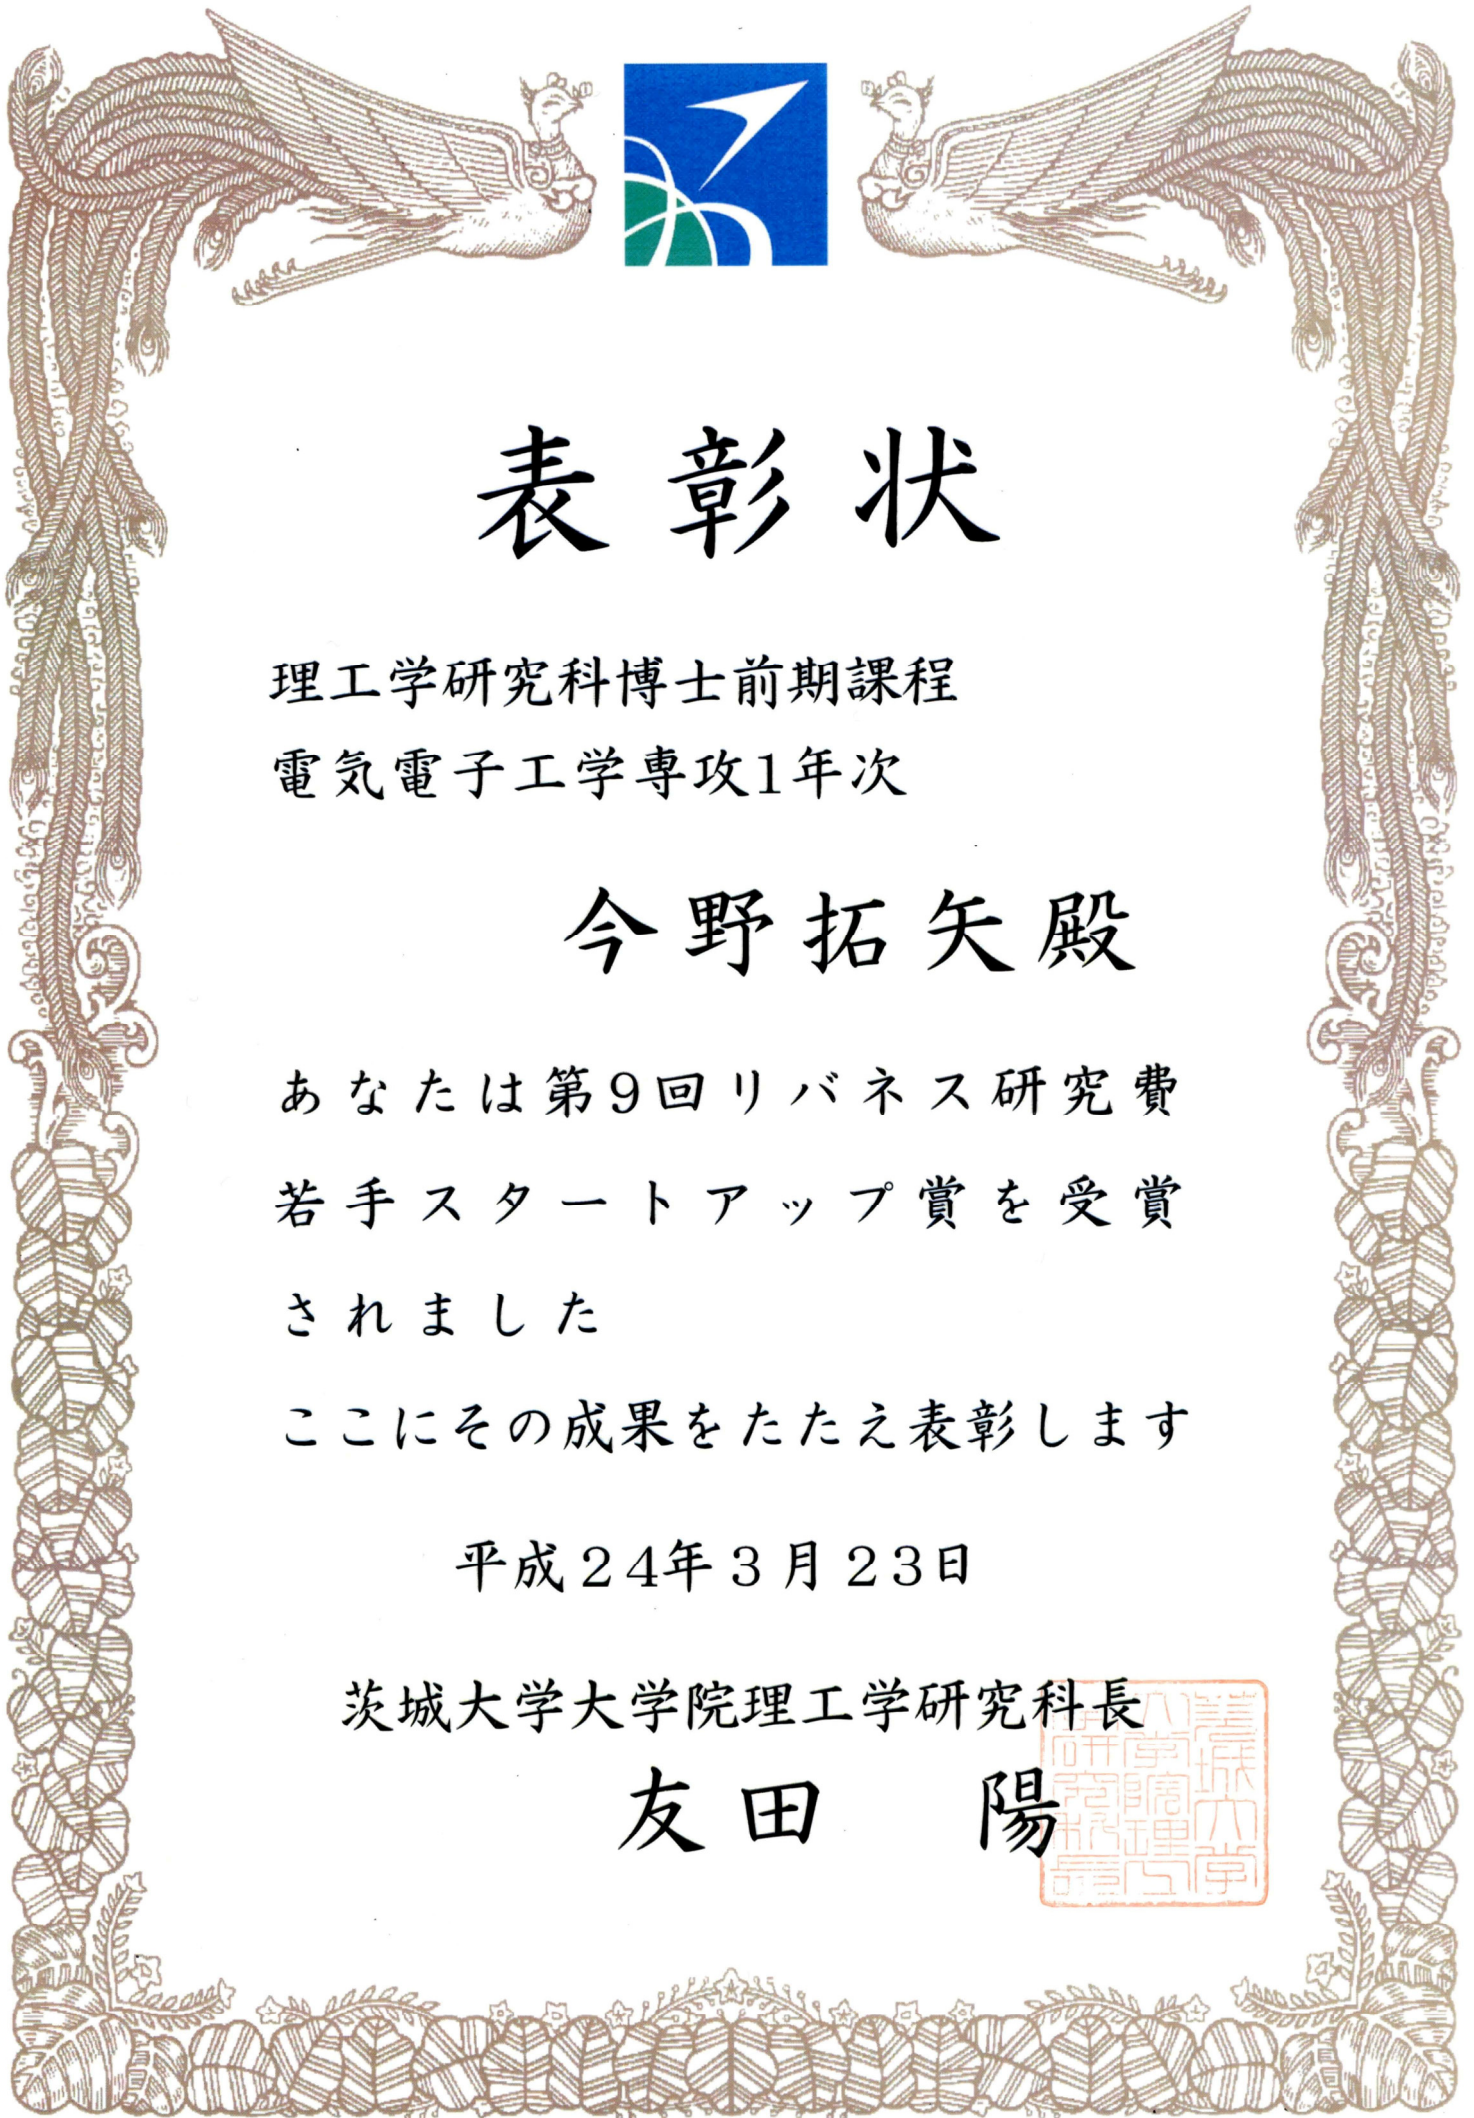 表彰状
理工学研究科博士前期課程
電気電子工学専攻1年次
今野拓矢殿
あなたは第9回リバネス研究費
若手スタートアップ賞を受賞
されました
ここにその成果をたたえ表彰します
平成24年3月23日
茨城大学大学院理工学研究科長
友田 陽
茨城大学
大学院理工
学研究科長